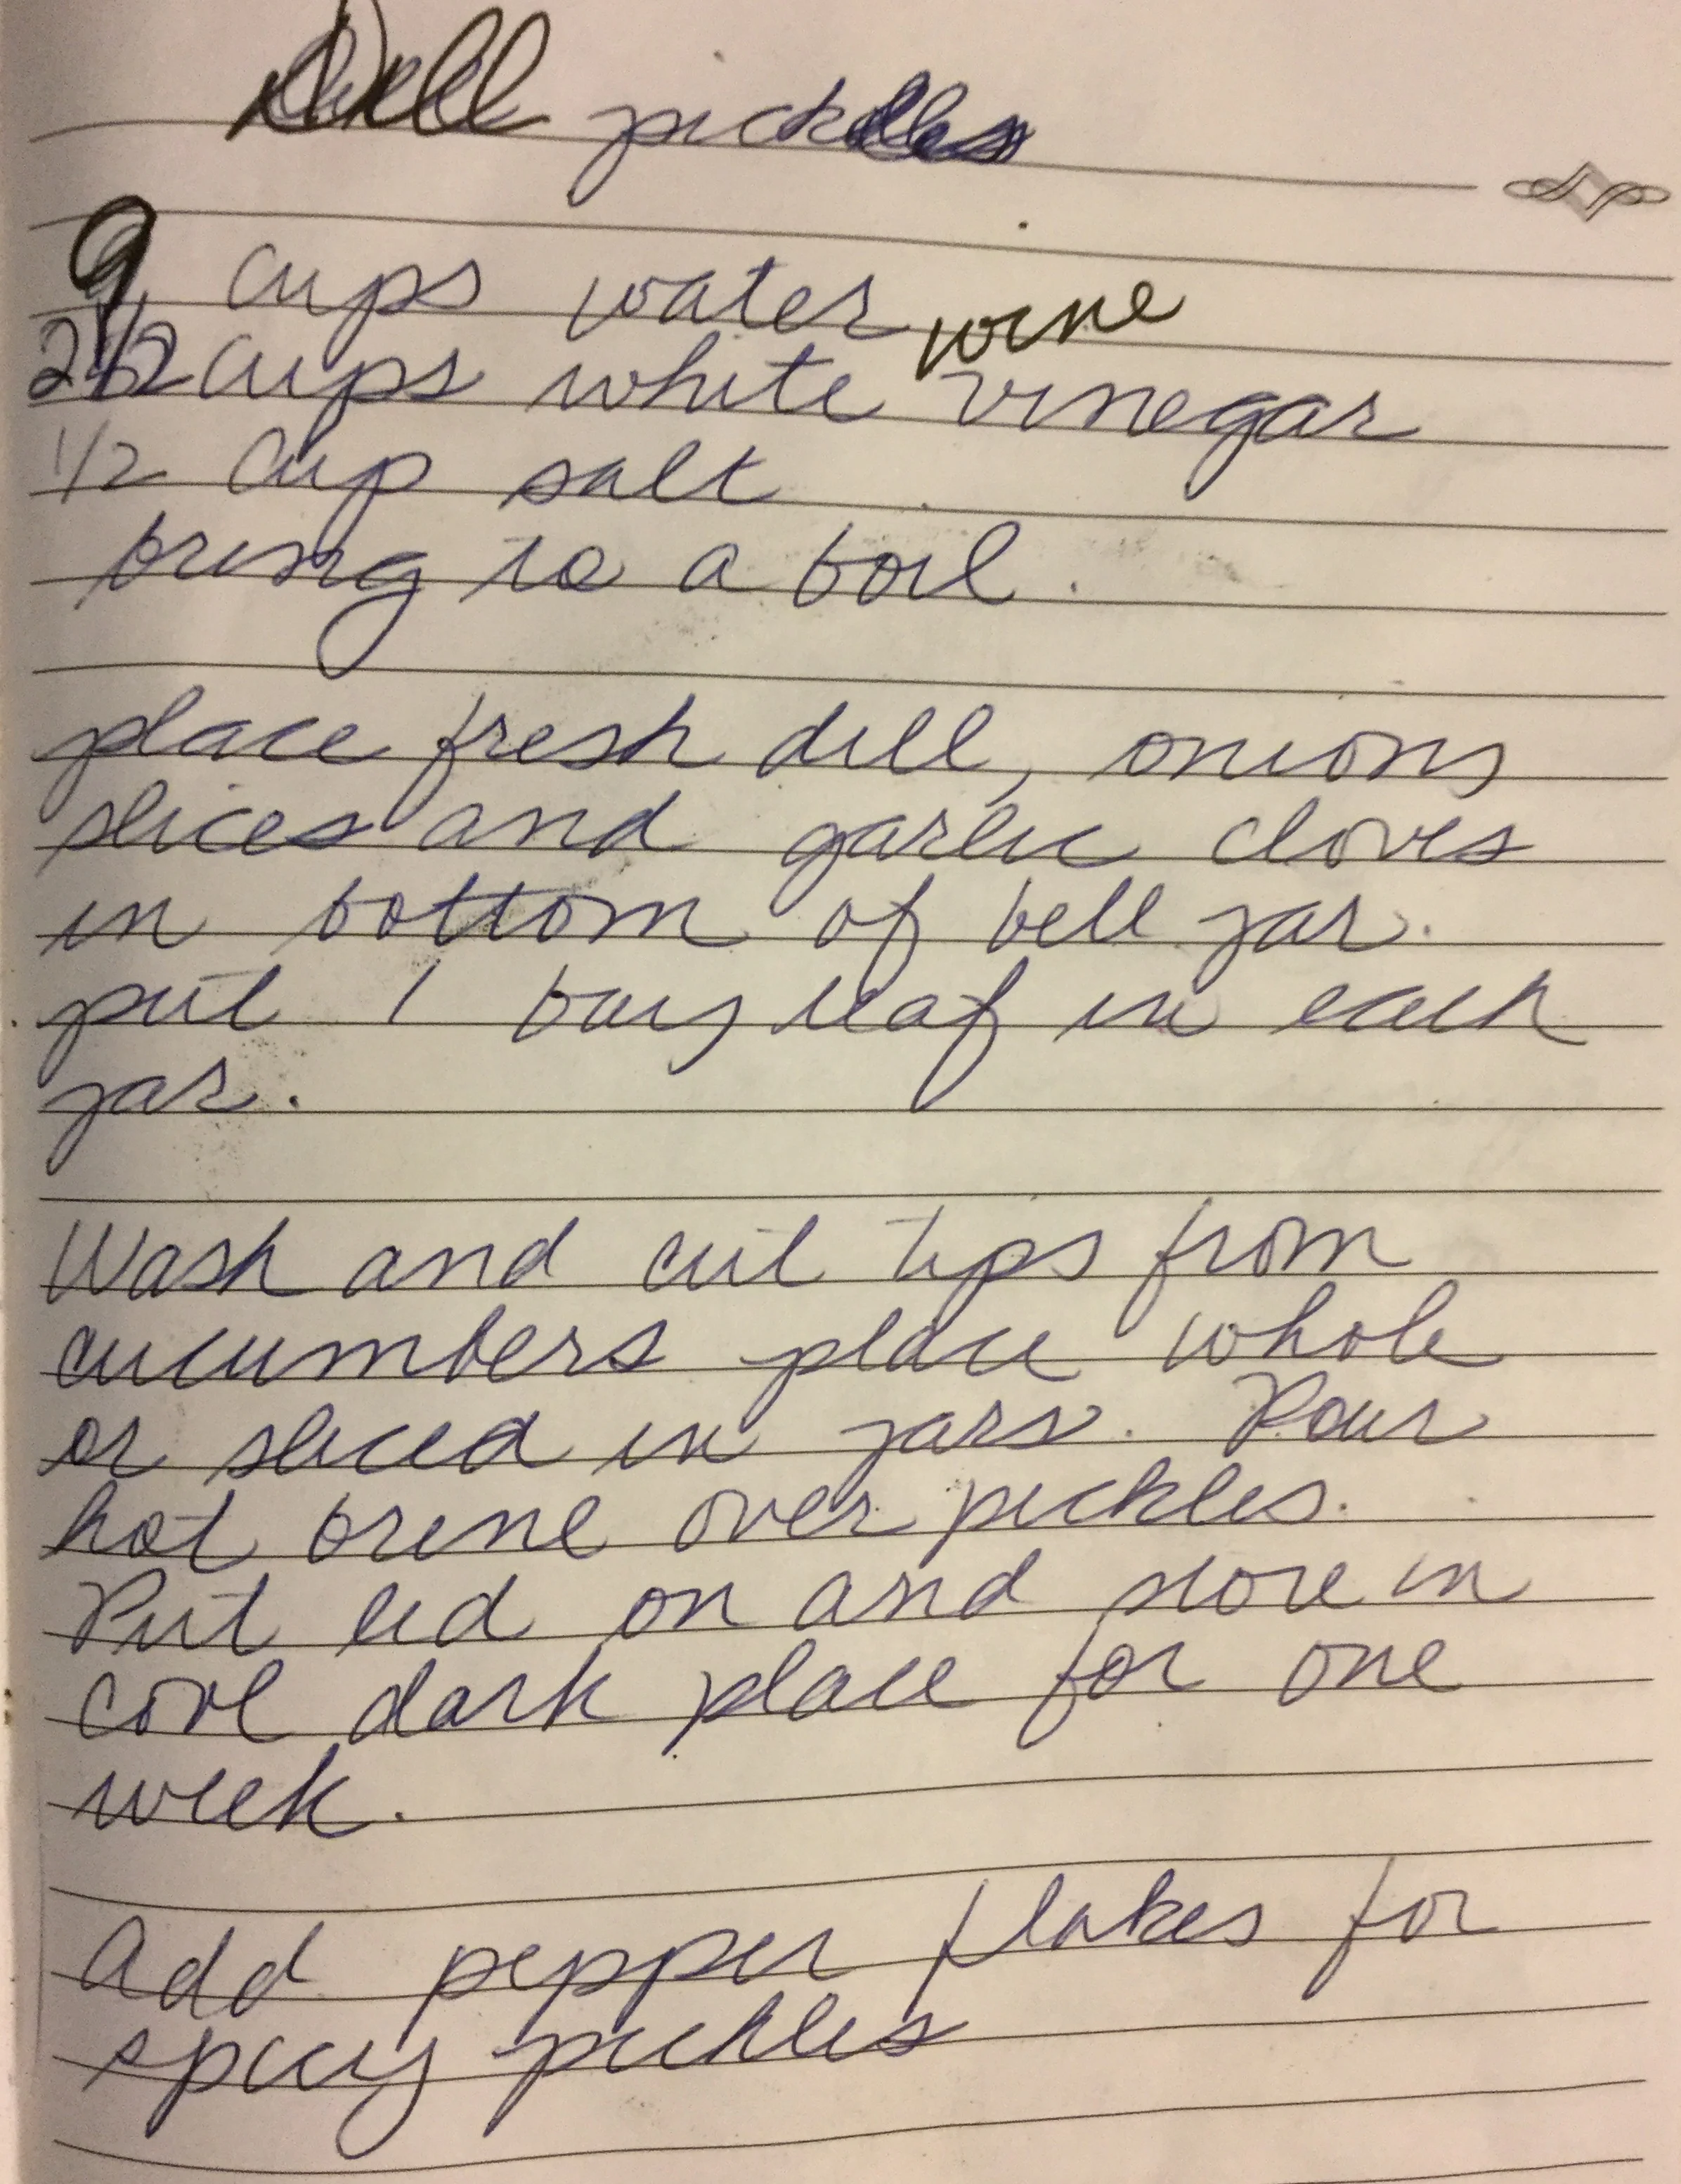 Dill pickles
9 cups water
wine
2 1/2 cups white vinegar
1/2 cup salt
bring to a boil.
place fresh dill, onions
slices and garlic cloves
in bottom of bell jar.
put 1 bay leaf in each
jar.
Wash and cut tips from
cucumbers place whole
or sliced in jars. Pour
hot brine over pickles.
Put lid on and store in
cool dark place for one
week.
Add pepper flakes for
spicy pickles